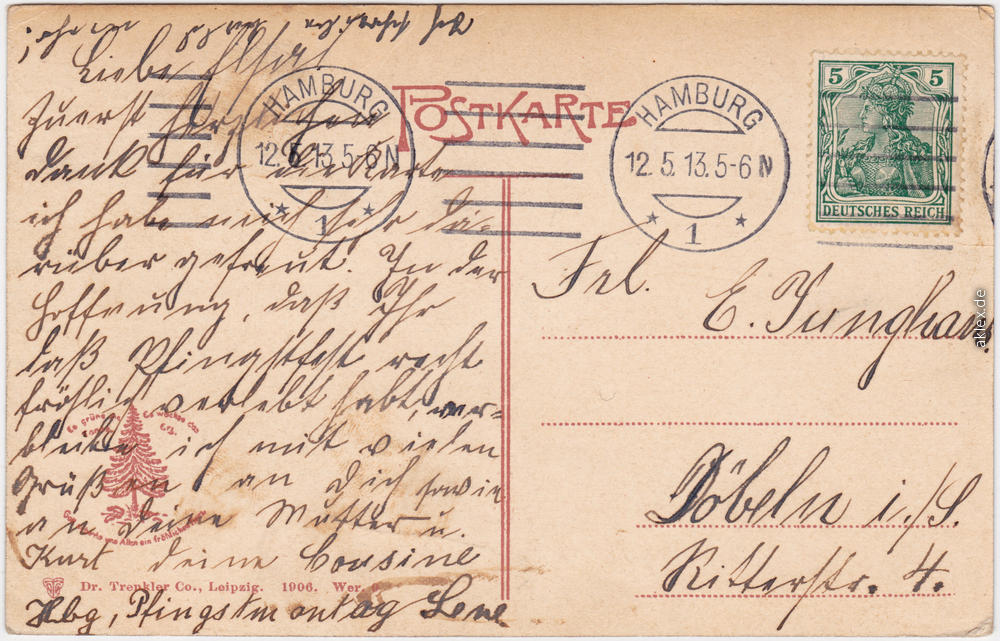 Liebe Elsa!
Zuerst herzlichen
Dank für die Karte
ich habe mich sehr da-
rüber gefreut. In der
Hoffnung, daß Ihr
daß Pfingstfest recht
fröhlich verlebt habt, ver=
bleibe ich mit vielen
Grüßen an Dich sowie
an Deine Mutter u.
Kurt Deine Cousine
Hbg, Pfingstmontag Lene
POSTKARTE
HAMBURG
12.5.13.5-6N
* 1 *
HAMBURG
12.5.13.5-6N
* 1 *
5 5
DEUTSCHES REICH
Frl.
E. Junghan
Döbeln i./S.
Ritterstr. 4.
Es grüne die Tanne
Es wachse das Erz.
Gott schenke uns Allen ein fröhliches Herz
Dr. Trenkler Co., Leipzig. 1906. Wer.
aklex.de